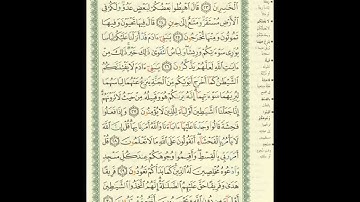 ٱلْخَٰسِرِينَ ﴿٢٣﴾ قَالَ ٱهْبِطُوا۟ بَعْضُكُمْ لِبَعْضٍ عَدُوٌّ وَلَكُمْ فِى
ٱلْأَرْضِ مُسْتَقَرٌّ وَمَتَٰعٌ إِلَىٰ حِينٍ ﴿٢٤﴾ قَالَ فِيهَا تَحْيَوْنَ وَفِيهَا
تَمُوتُونَ وَمِنْهَا تُخْرَجُونَ ﴿٢٥﴾ يَٰبَنِىٓ ءَادَمَ قَدْ أَنزَلْنَا عَلَيْكُمْ لِبَاسًا
يُوَٰرِى سَوْءَٰتِكُمْ وَرِيشًا وَلِبَاسُ ٱلتَّقْوَىٰ ذَٰلِكَ خَيْرٌ ذَٰلِكَ مِنْ
ءَايَٰتِ ٱللَّهِ لَعَلَّهُمْ يَذَّكَّرُونَ ﴿٢٦﴾ يَٰبَنِىٓ ءَادَمَ لَا يَفْتِنَنَّكُمُ
ٱلشَّيْطَٰنُ كَمَآ أَخْرَجَ أَبَوَيْكُم مِّنَ ٱلْجَنَّةِ يَنزِعُ عَنْهُمَا لِبَاسَهُمَا
لِيُرِيَهُمَا سَوْءَٰتِهِمَآ إِنَّهُۥ يَرَىٰكُمْ هُوَ وَقَبِيلُهُۥ مِنْ حَيْثُ لَا تَرَوْنَهُمْ
إِنَّا جَعَلْنَا ٱلشَّيَٰطِينَ أَوْلِيَآءَ لِلَّذِينَ لَا يُؤْمِنُونَ ﴿٢٧﴾ وَإِذَا فَعَلُوا۟
فَٰحِشَةً قَالُوا۟ وَجَدْنَا عَلَيْهَآ ءَابَآءَنَا وَٱللَّهُ أَمَرَنَا بِهَا قُلْ إِنَّ ٱللَّهَ
لَا يَأْمُرُ بِٱلْفَحْشَآءِ أَتَقُولُونَ عَلَى ٱللَّهِ مَا لَا تَعْلَمُونَ ﴿٢٨﴾ قُلْ
أَمَرَ رَبِّى بِٱلْقِسْطِ وَأَقِيمُوا۟ وُجُوهَكُمْ عِندَ كُلِّ مَسْجِدٍ
وَٱدْعُوهُ مُخْلِصِينَ لَهُ ٱلدِّينَ كَمَا بَدَأَكُمْ تَعُودُونَ ﴿٢٩﴾ فَرِيقًا
هَدَىٰ وَفَرِيقًا حَقَّ عَلَيْهِمُ ٱلضَّلَٰلَةُ إِنَّهُمُ ٱتَّخَذُوا۟ ٱلشَّيَٰطِينَ